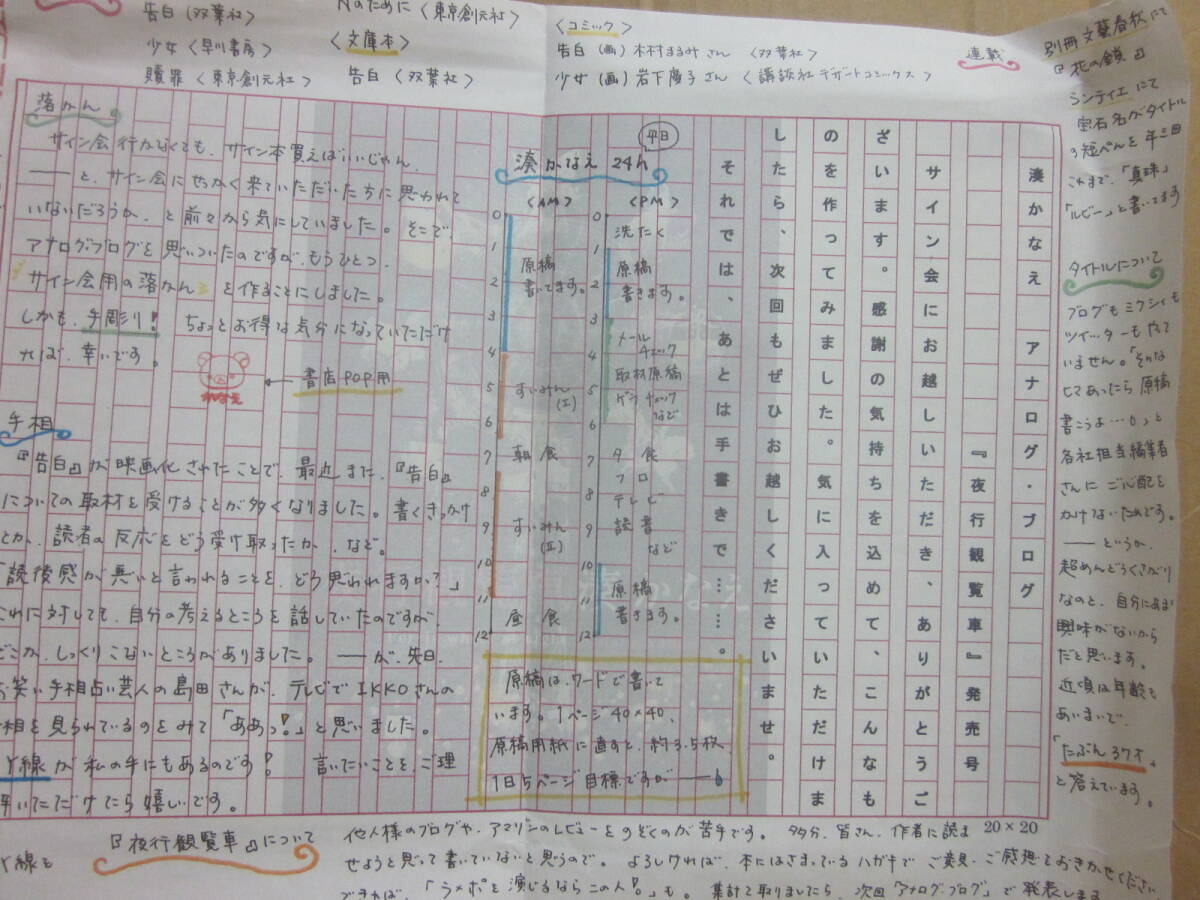 告白〈双葉社〉
少女〈早川書房〉
贖罪〈東京創元社〉
Nのために〈東京創元社〉
〈文庫本〉
告白〈双葉社〉
〈コミック〉
告白(画)木村まるみさん〈双葉社〉
少女(画)岩下慶子さん〈講談社デザートコミックス〉
連載
別冊文藝春秋にて
『花の鎖』
ランティエにて
宝石名がタイトル
の短ぺんを年三回
これまで、「真珠」
「ルビー」と書いてます
湊かなえ アナログ・ブログ
『夜行観覧車』発売号
サイン会にお越しいただき、ありがとうご
ざいます。感謝の気持ちを込めて、こんなも
のを作ってみました。気に入っていただけま
したら、次回もぜひお越しくださいませ。
それでは、あとは手書きで……。
20×20
タイトルについて
ブログもミクシィも
ツイッターもやって
いません。「そんな
ヒマあったら原稿
書こうよ…。」と
各社担当編集者
さんにご心配を
かけないためです。
――というか、
超めんどうくさがり
なのと、自分にあまり
興味がないから
だと思います。
近頃は年齢も
あいまいで、
「たぶん37才」
と答えています。
平日
湊かなえ 24h
〈AM〉
0
1
2
3
4
5
6
7
8
9
10
11
12
原稿
書いてます。
すいみん
(I)
朝食
すいみん
(II)
昼食
〈PM〉
0
1
2
3
4
5
6
7
8
9
10
11
12
洗たく
原稿
書きます。
メール
チェック
取材原稿
ゲラチェック
など
夕食
フロ
テレビ
読書
など
原稿
書きます。
原稿は、ワードで書いて
います。1ページ40×40、
原稿用紙に直すと、約3.5枚
1日5ページ目標ですが――。
落かん
サイン会行かなくても、サイン本買えばいいじゃん。
――と、サイン会にせっかく来ていただいたちに思われて
いないだろうか、と前々から気にしていました。そこで、
アナログ・ブログを思いついたのですが、もうひとつ、
サイン会用の落かんを作ることにしました。
しかも、手彫り! ちょっとお得な気分になっていただけ
れば、幸いです。
かなえ
←書店POP用
手相
『告白』が映画化されたことで、最近また、『告白』
についての取材を受けることが多くなりました。書くきっかけ
とか、読者の反応をどう受け取ったか、など。
「読後感が悪いと言われることを、どう思われますか?」
これに対しても、自分の考えるところを話していたのですが、
どこか、しっくりこないところがありました。――が、先日、
お笑い手相占い芸人の島田さんが、テレビでIKKOさんの
手相を見られているのをみて「ああっ!」と思いました。
Y線が私の手にもあるのです! 言いたいことを、ご理
解いただけたら嬉しいです。
『夜行観覧車』について
他人様のブログや、アマゾンのレビューをのぞくのが苦手です。多分、皆さん、作者に読ま
せようと思って書いていないと思うので。よろしければ、本にはさまっているハガキで ご意見・ご感想をおきかせください
できれば、「ラメポを演じるならこの人!」も。集計して取りましたら、次回「アナログ・ブログ」で発表します